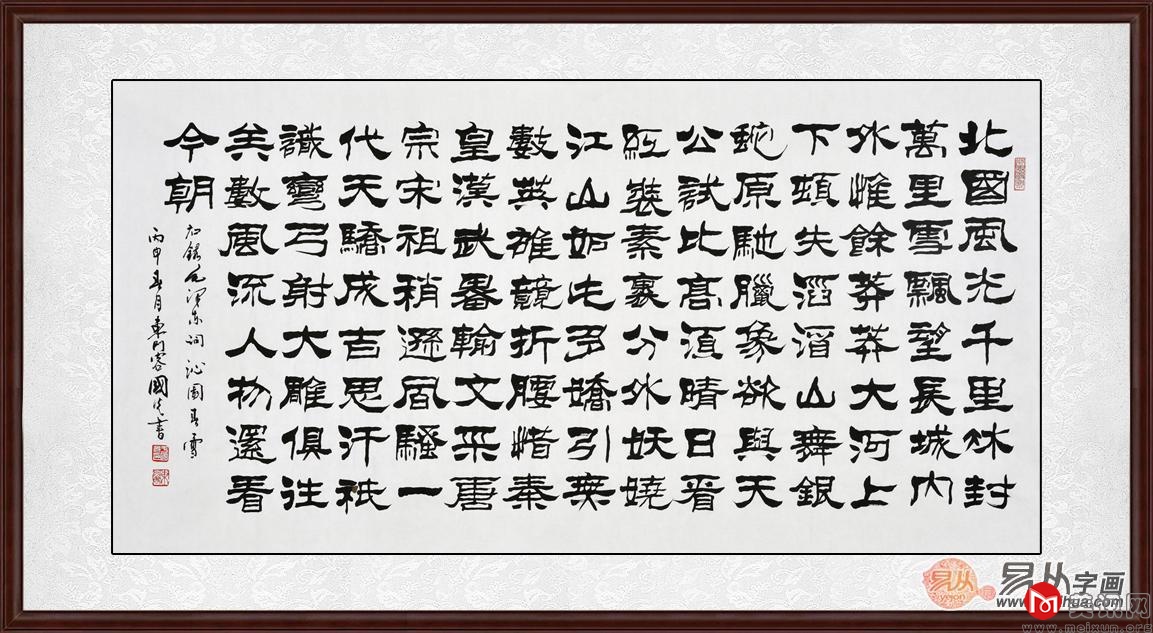 北國風光千里冰封
萬里雪飄望長城內
外惟餘莽莽大河上
下頓失滔滔山舞銀
蛇原馳臘象欲與天
公試比高須晴日看
紅裝素裹分外妖嬈
江山如此多嬌引無
數英雄競折腰惜秦
皇漢武略輸文采唐
宗宋祖稍遜風騷一
代天驕成吉思汗祇
識彎弓射大雕俱往
矣數風流人物還看
今朝
右錄毛澤東詞沁園春雪
丙申春月東門客國先書
易从
易从字画
www.meixun.org